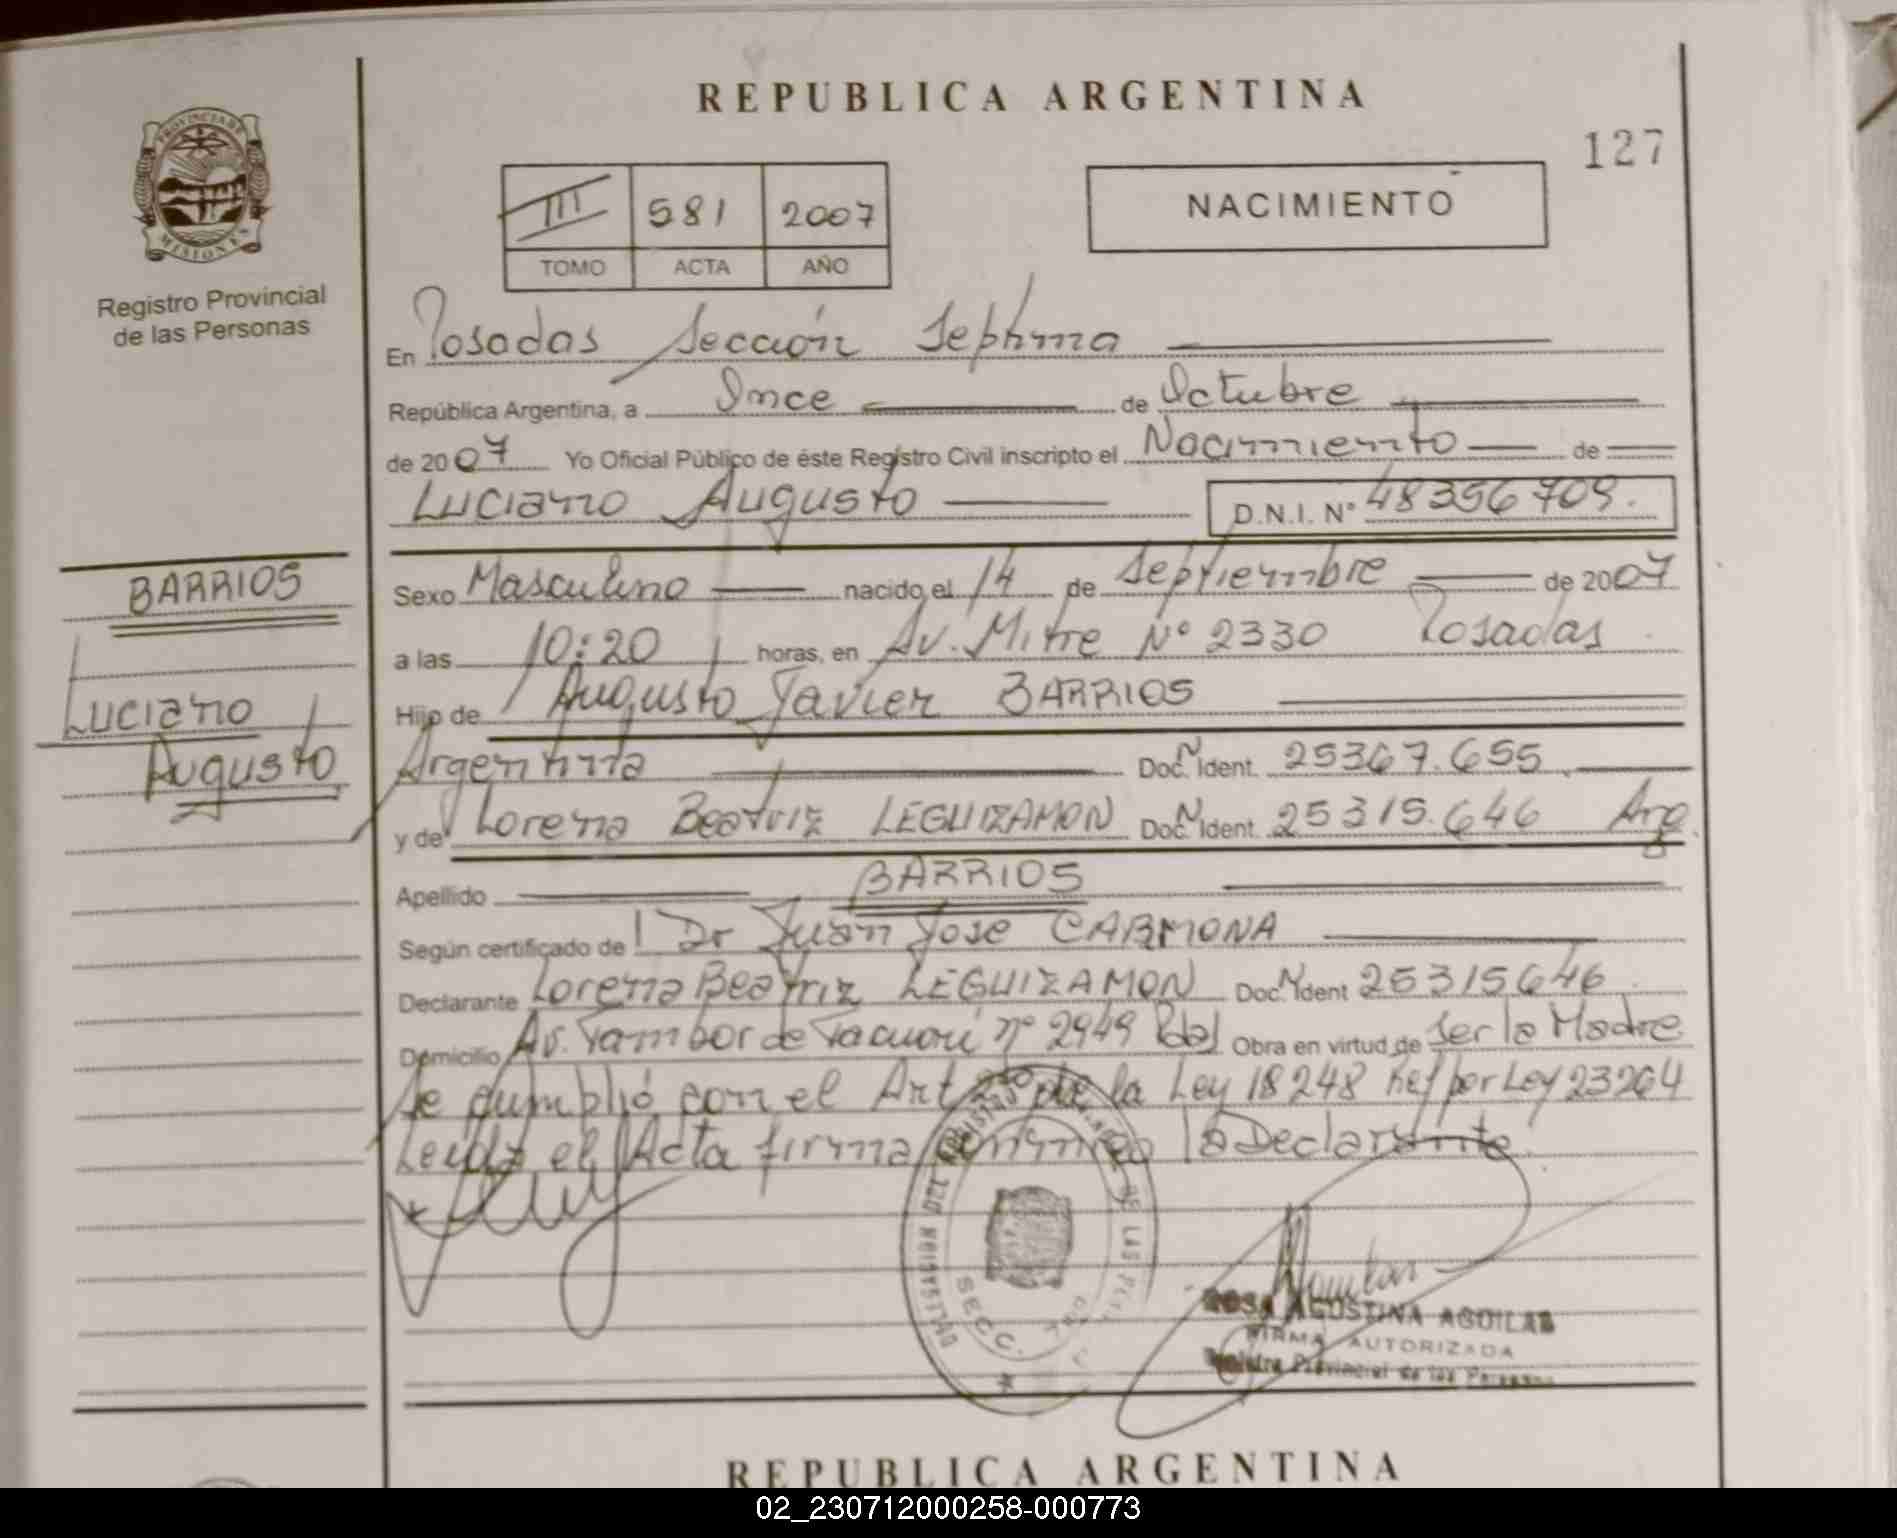 REPUBLICA ARGENTINA
127
PROVINCIA DE
MISIONES
Registro Provincial
de las Personas
III 581 2007
TOMO ACTA AÑO
NACIMIENTO
En Posadas Sección Septima
República Argentina, a Once de Octubre
de 2007 Yo Oficial Público de éste Registro Civil inscripto el Nacimiento de
Luciano Augusto D.N.I. N° 48356709.
BARRIOS
Luciano
Augusto
Sexo Masculino nacido el 14 de Septiembre de 2007
a las 10:20 horas, en Av. Mitre N° 2330 Posadas
Hijo de Augusto Javier BARRIOS
Argentina Doc. N Ident. 25367.655
y de Lorena Beatriz LEGUIZAMON Doc. N Ident. 25315.646 Arg.
Apellido BARRIOS
Según certificado de Dr Juan Jose CARMONA
Declarante Lorena Beatriz LEGUIZAMON Doc. N Ident 25315646
Domicilio Av. Tambor de Tacuari n° 2949 Pdas Obra en virtud de Ser la Madre
Se cumplió con el Art de la Ley 18248 Ref por Ley 23264
Leida el Acta firma conmigo la Declarante.
SECC.
ROSA AGUSTINA AGUILAR
FIRMA AUTORIZADA
Registro Provincial de las Personas
REPUBLICA ARGENTINA
02_230712000258-000773